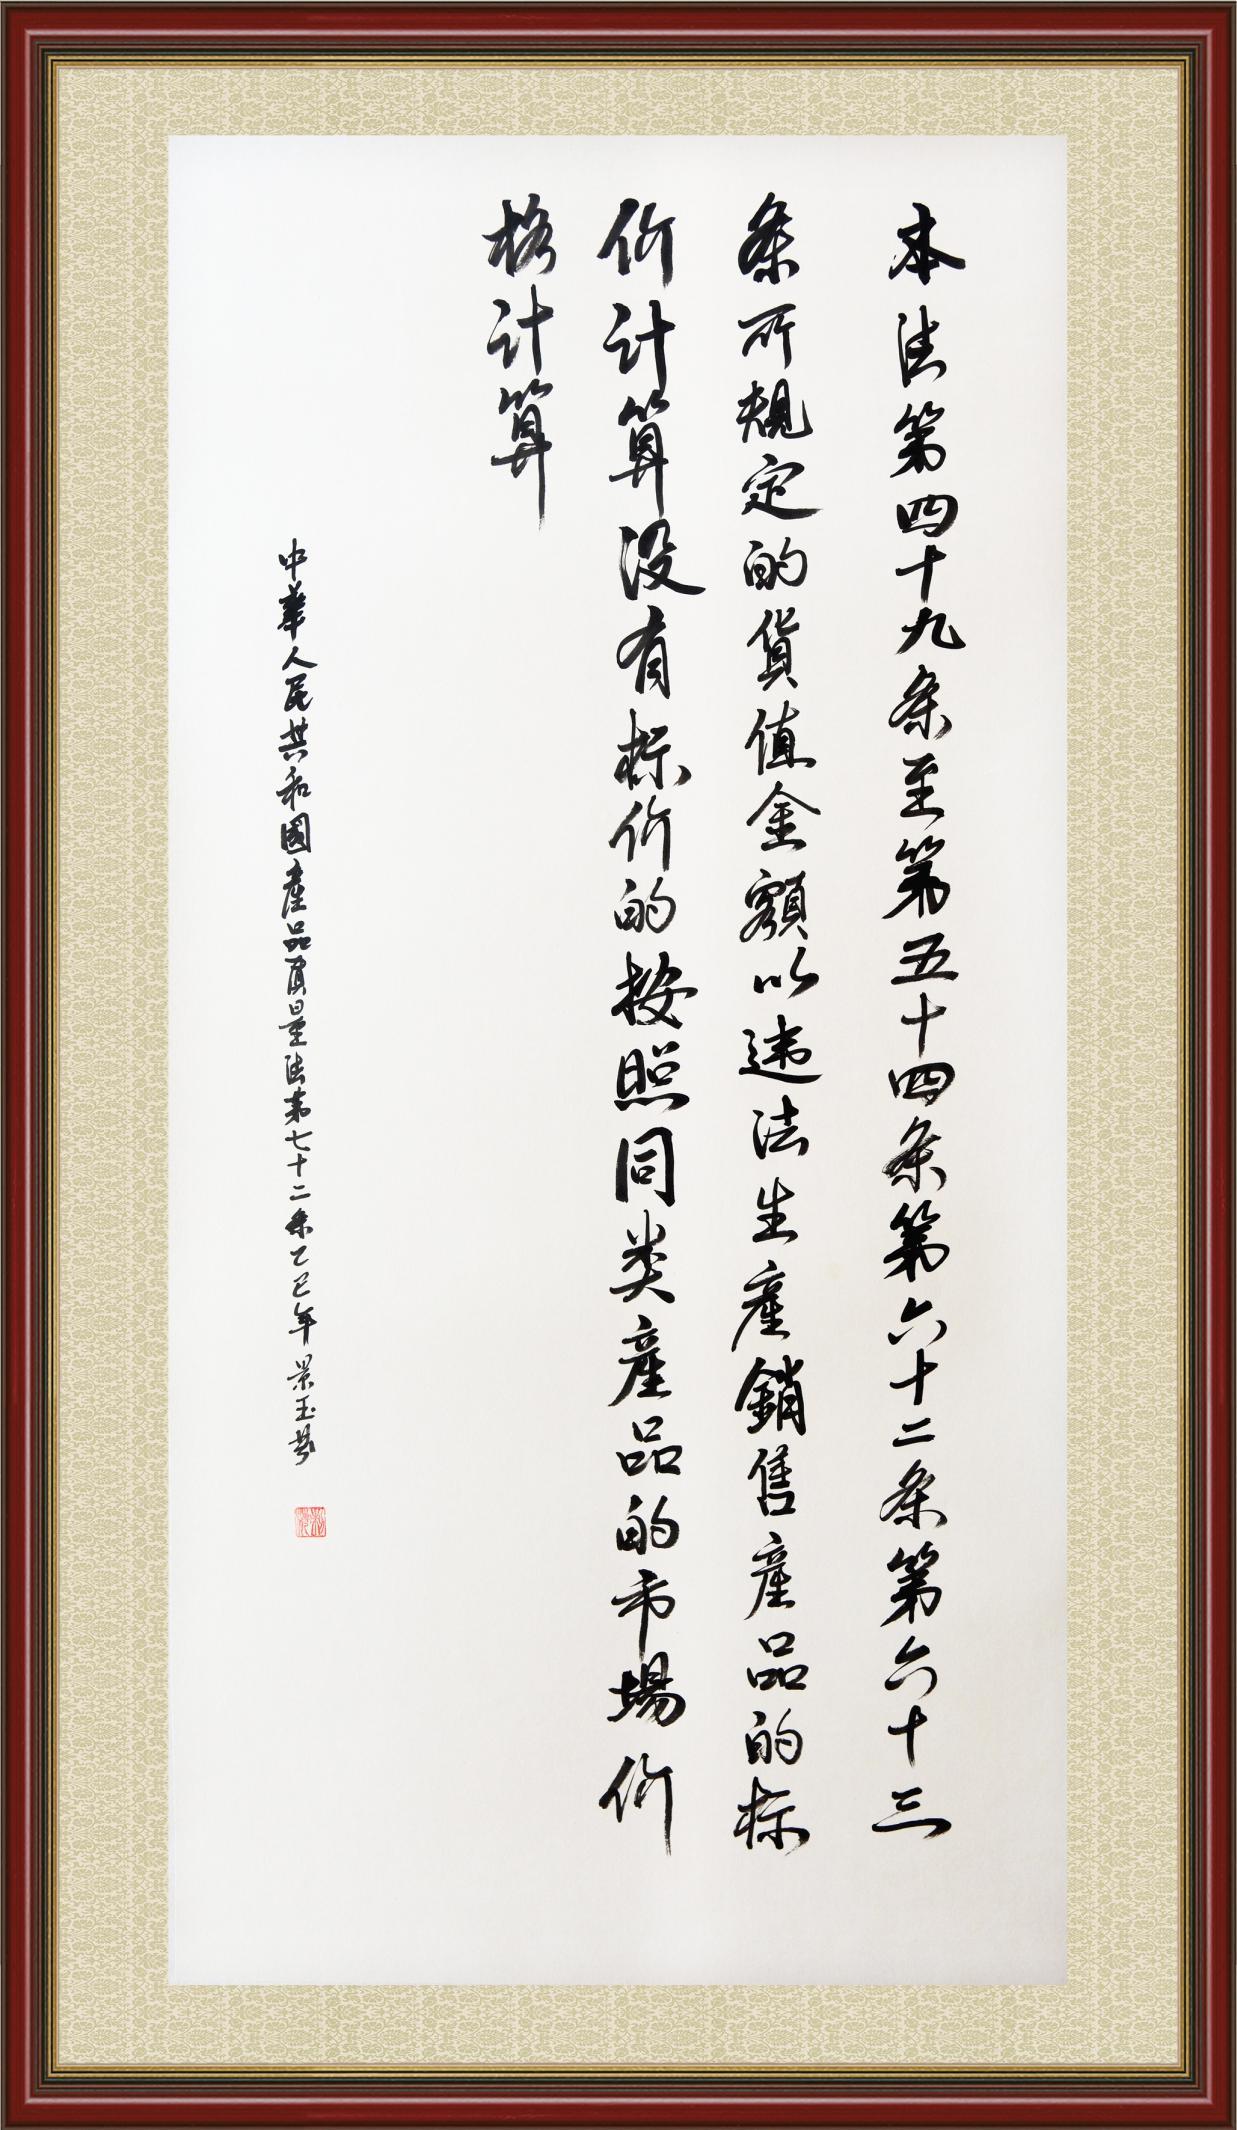 本法第四十九条至第五十四条第六十二条第六十三
条所規定的貨值金額以违法生產銷售產品的标
价计算没有标价的按照同类產品的市場价
格计算
中華人民共和國產品質量法第七十二条乙巳年景玉